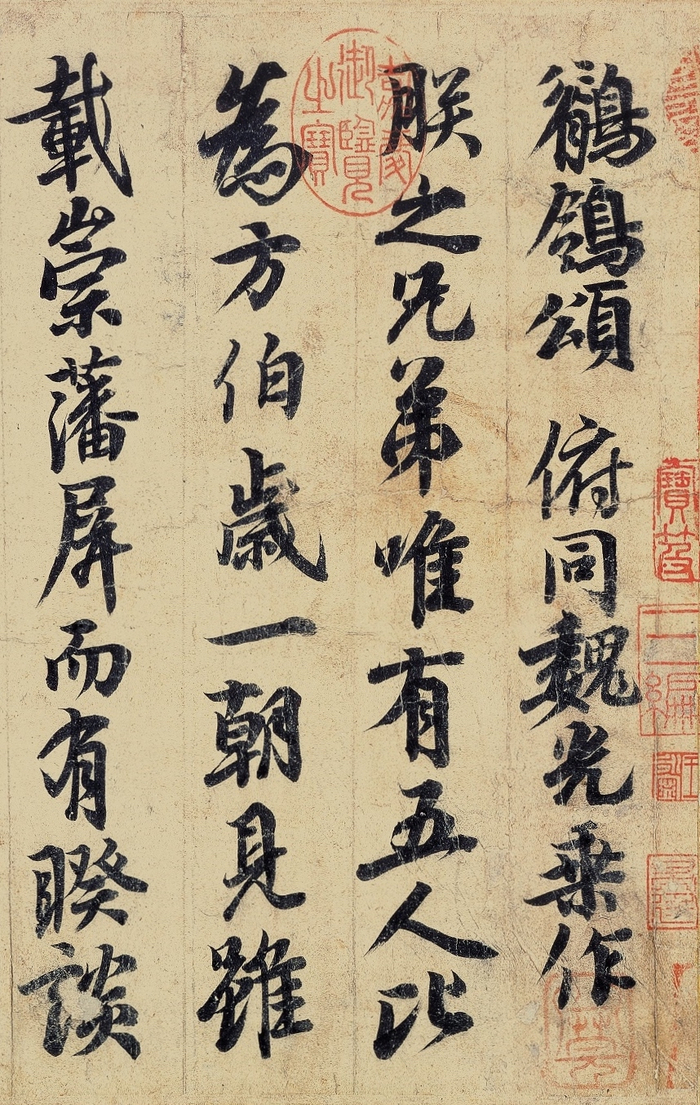 鶺鴒頌 俯同魏光乘作
朕之兄弟唯有五人比
為方伯歲一朝見雖
載崇藩屏而有睽談
嘉慶御覽之寶
寶笈
三編